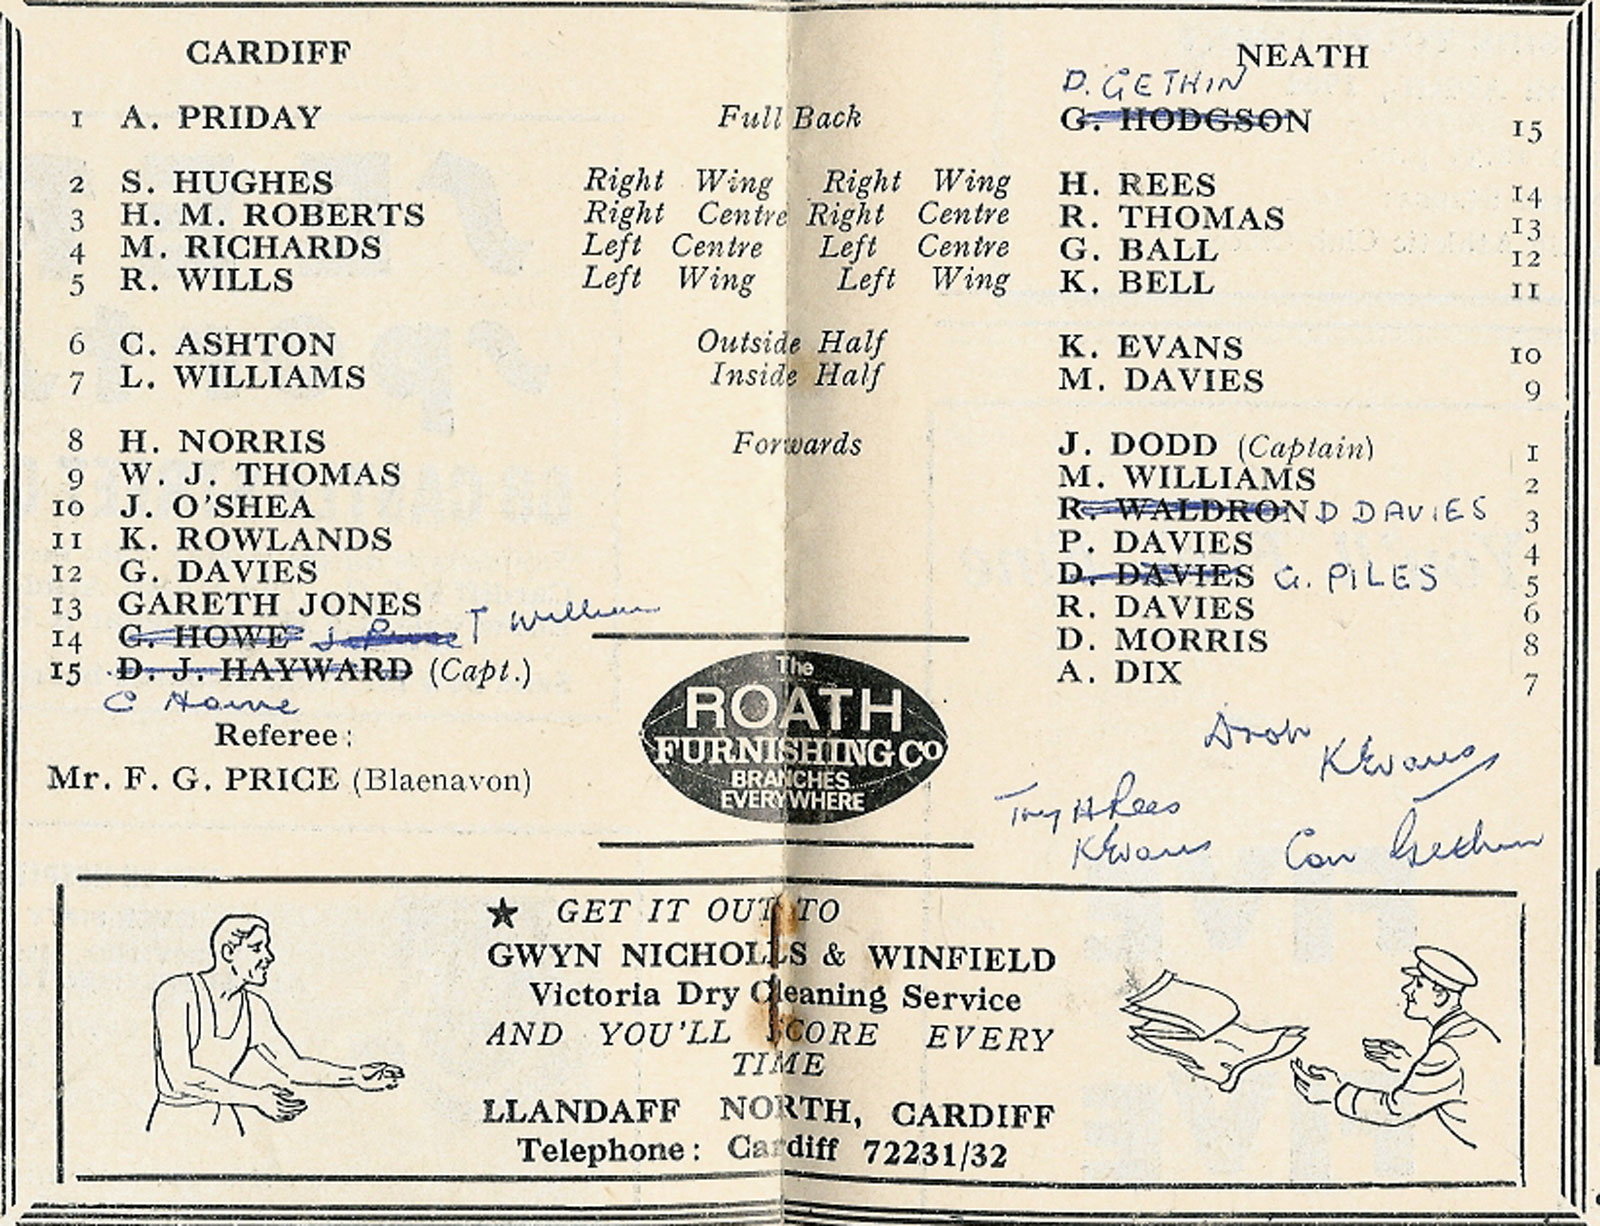 CARDIFF NEATH
D. GETHIN
1 A. PRIDAY Full Back G. HODGSON 15
2 S. HUGHES Right Wing Right Wing H. REES 14
3 H. M. ROBERTS Right Centre Right Centre R. THOMAS 13
4 M. RICHARDS Left Centre Left Centre G. BALL 12
5 R. WILLS Left Wing Left Wing K. BELL 11
6 C. ASHTON Outside Half K. EVANS 10
7 L. WILLIAMS Inside Half M. DAVIES 9
8 H. NORRIS Forwards J. DODD (Captain) 1
9 W. J. THOMAS M. WILLIAMS 2
10 J. O'SHEA R. WALDRON D DAVIES 3
11 K. ROWLANDS P. DAVIES 4
12 G. DAVIES D. DAVIES G. PILES 5
13 GARETH JONES R. DAVIES 6
14 C. HOWE T William D. MORRIS 8
15 D. J. HAYWARD (Capt.) A. DIX 7
C Howe
Referee:
Mr. F. G. PRICE (Blaenavon)
The
ROATH
FURNISHING CO
BRANCHES
EVERYWHERE
K Evans
H Rees
K Evans Gethin
★ GET IT OUT TO
GWYN NICHOLLS & WINFIELD
Victoria Dry Cleaning Service
AND YOU'LL SCORE EVERY
TIME
LLANDAFF NORTH, CARDIFF
Telephone: Cardiff 72231/32